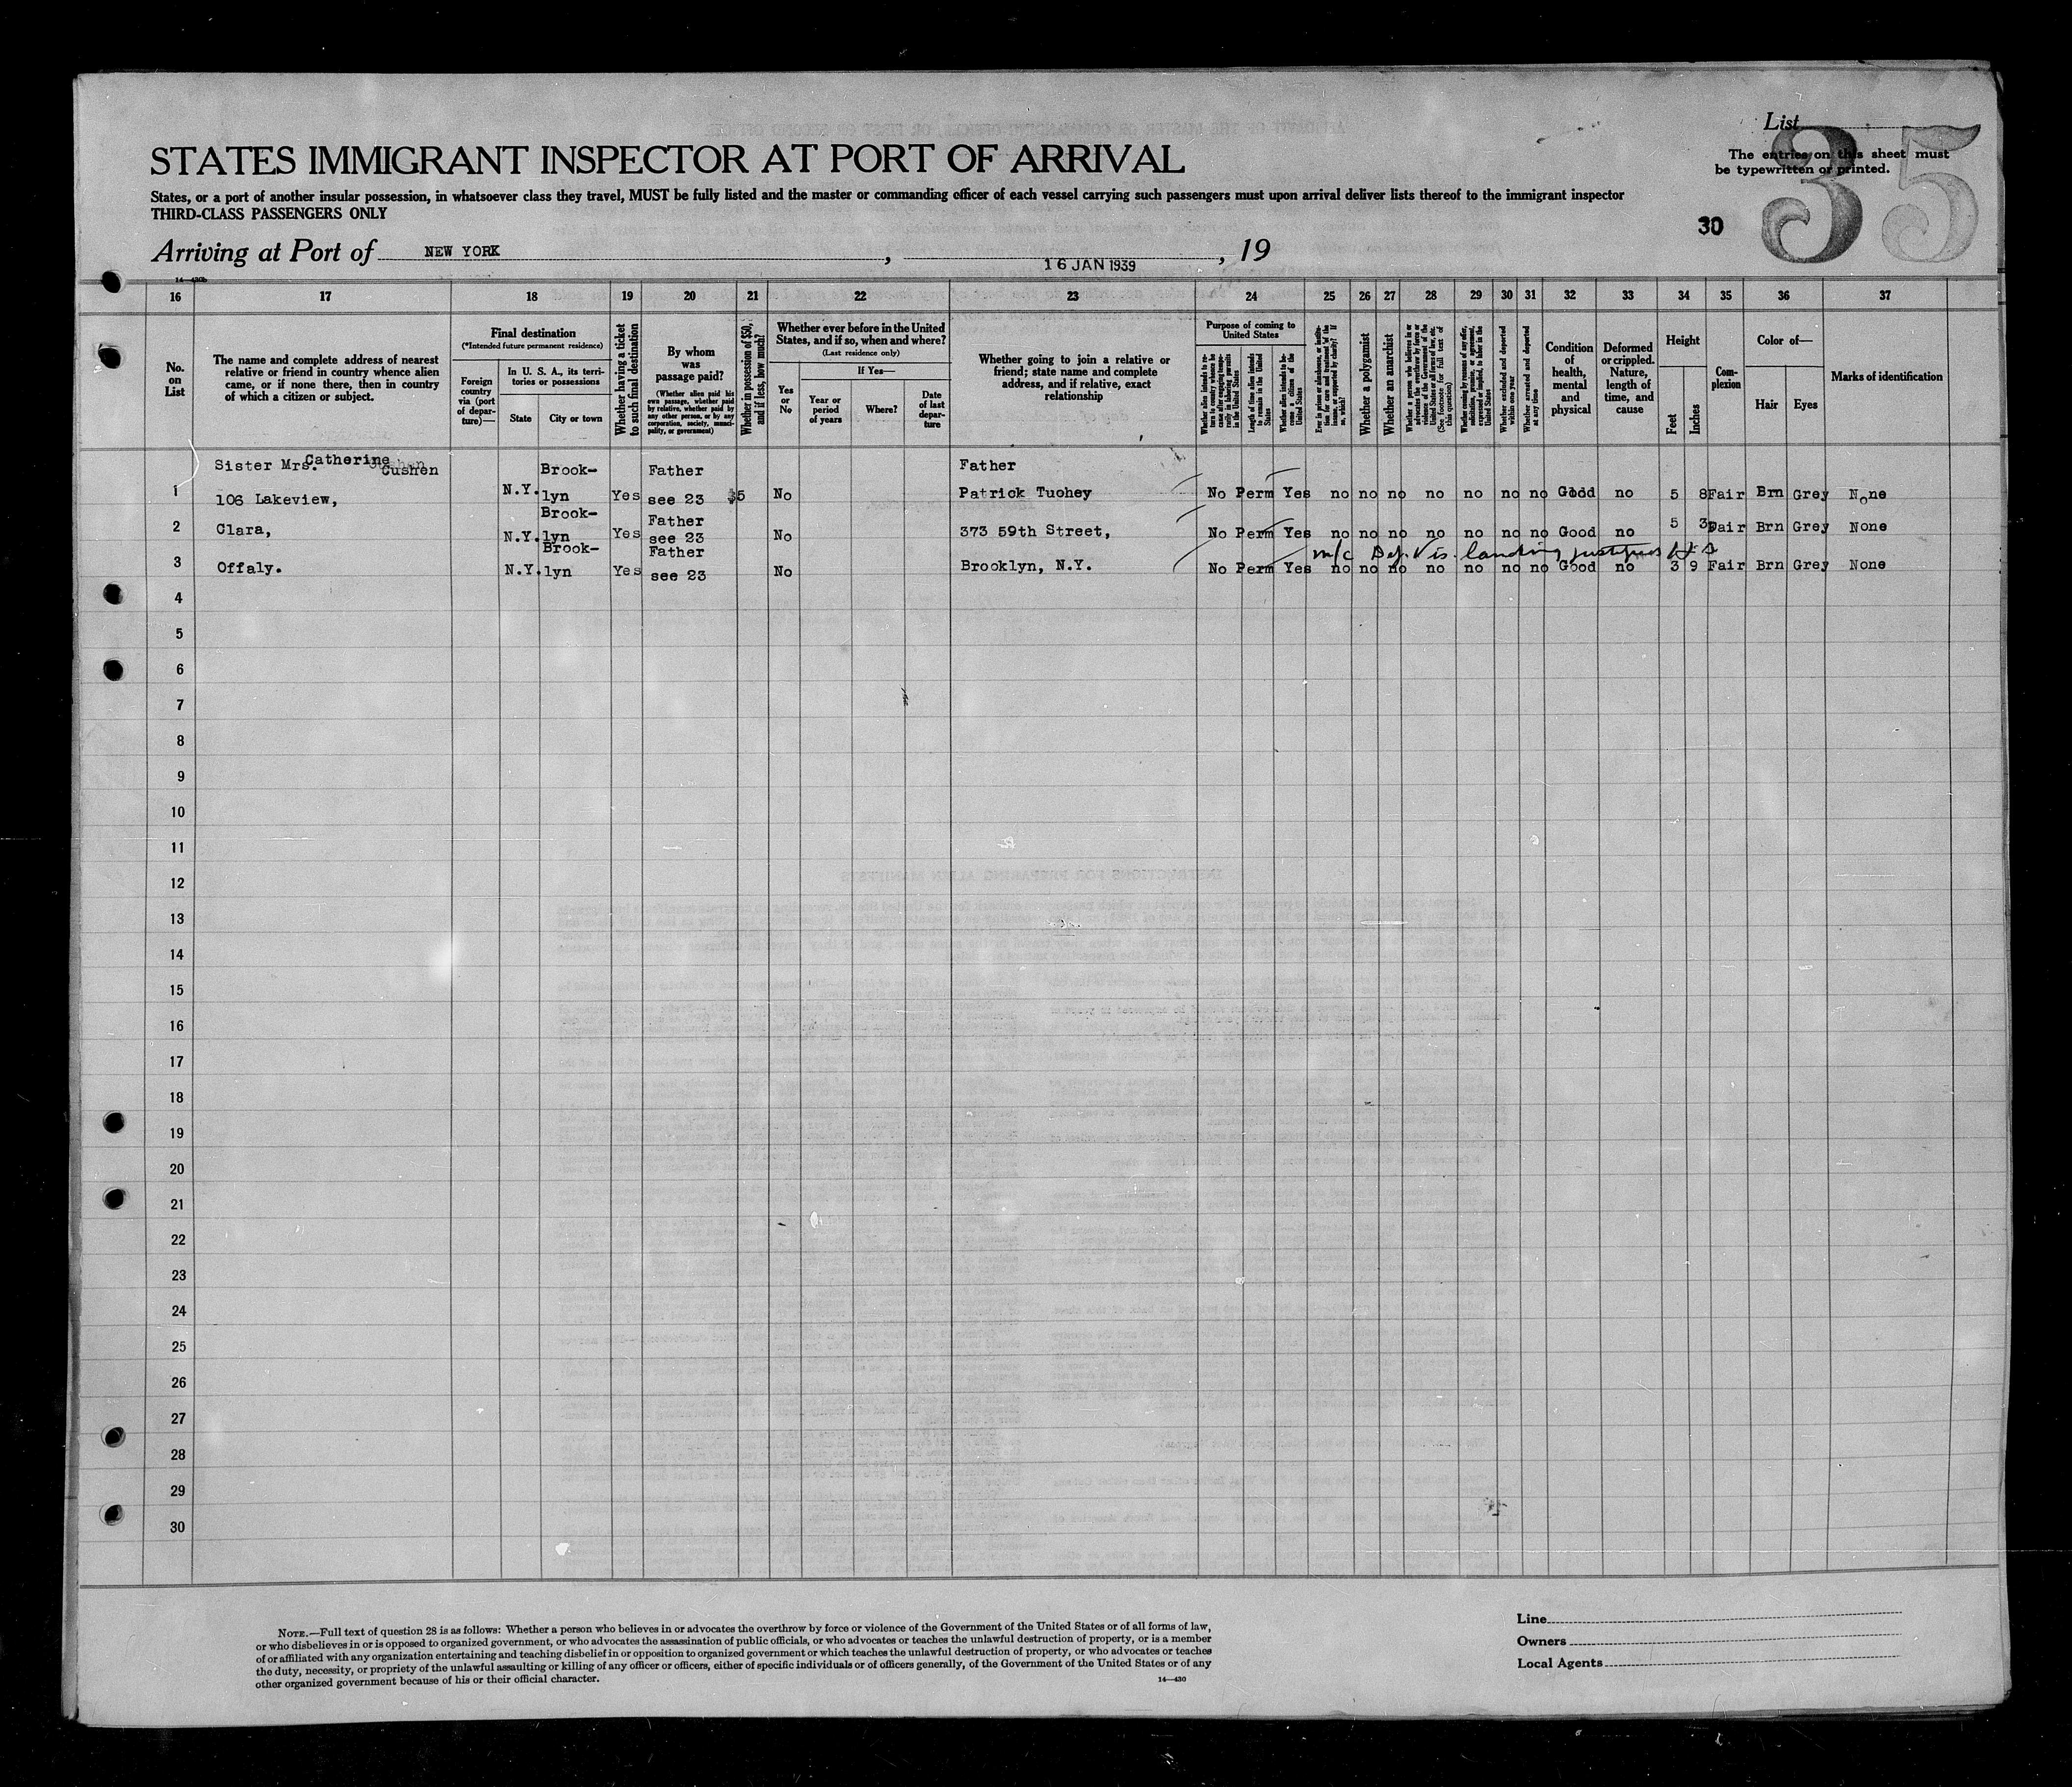 List
35
The entries on this sheet must
be typewritten or printed.
STATES IMMIGRANT INSPECTOR AT PORT OF ARRIVAL
States, or a port of another insular possession, in whatsoever class they travel, MUST be fully listed and the master or commanding officer of each vessel carrying such passengers must upon arrival deliver lists thereof to the immigrant inspector
THIRD-CLASS PASSENGERS ONLY
30
Arriving at Port of NEW YORK, 16 JAN 1939, 19
16 17 18 19 20 21 22 23 24 25 26 27 28 29 30 31 32 33 34 35 36 37
No. on List
The name and complete address of nearest relative or friend in country whence alien came, or if none there, then in country of which a citizen or subject.
Final destination
(*Intended future permanent residence)
Foreign country via (port of departure)—
In U. S. A., its territories or possessions
State
City or town
Whether having a ticket to such final destination
By whom was passage paid?
(Whether alien paid his own passage, whether paid by relative, whether paid by any other person, or by any corporation, society, municipality, or government)
Whether in possession of $50, and if less, how much?
Whether ever before in the United States, and if so, when and where?
(Last residence only)
Yes or No
If Yes—
Year or period of years
Where?
Date of last departure
Whether going to join a relative or friend; state name and complete address, and if relative, exact relationship
Purpose of coming to United States
Whether alien intends to return to country whence he came after engaging temporarily in laboring pursuits in the United States
Length of time alien intends to remain in the United States
Whether alien intends to become a citizen of the United States
Ever in prison or almshouse, or institution for care and treatment of the insane, or supported by charity? If so, which?
Whether a polygamist
Whether an anarchist
Whether a person who believes in or advocates the overthrow by force or violence of the Government of the United States or all forms of law, etc. (See footnote for full text of this question)
Whether coming by reason of any offer, solicitation, promise, or agreement, expressed or implied, to labor in the United States
Whether excluded and deported within one year
Whether arrested and deported at any time
Condition of health, mental and physical
Deformed or crippled. Nature, length of time, and cause
Height
Feet
Inches
Complexion
Color of—
Hair
Eyes
Marks of identification
1 Sister Mrs. Catherine Cushen
106 Lakeview, N.Y. Brook-lyn Yes Father see 23 $5 No Father Patrick Tuohey No Perm Yes no no no no no no no Good no 5 8 Fair Brn Grey None
2 Clara, N.Y. Brook-lyn Yes Father see 23 No 373 59th Street, No Perm Yes no no no no no no no Good no 5 3 Fair Brn Grey None
m/c Def. Vis. landing justifies
3 Offaly. N.Y. Brook-lyn Yes Father see 23 No Brooklyn, N.Y. No Perm Yes no no no no no no no Good no 3 9 Fair Brn Grey None
4
5
6
7
8
9
10
11
12
13
14
15
16
17
18
19
20
21
22
23
24
25
26
27
28
29
30
NOTE.—Full text of question 28 is as follows: Whether a person who believes in or advocates the overthrow by force or violence of the Government of the United States or of all forms of law,
or who disbelieves in or is opposed to organized government, or who advocates the assassination of public officials, or who advocates or teaches the unlawful destruction of property, or is a member
of or affiliated with any organization entertaining and teaching disbelief in or opposition to organized government or which teaches the unlawful destruction of property, or who advocates or teaches
the duty, necessity, or propriety of the unlawful assaulting or killing of any officer or officers, either of specific individuals or of officers generally, of the Government of the United States or of any
other organized government because of his or their official character.
14—430
Line
Owners
Local Agents